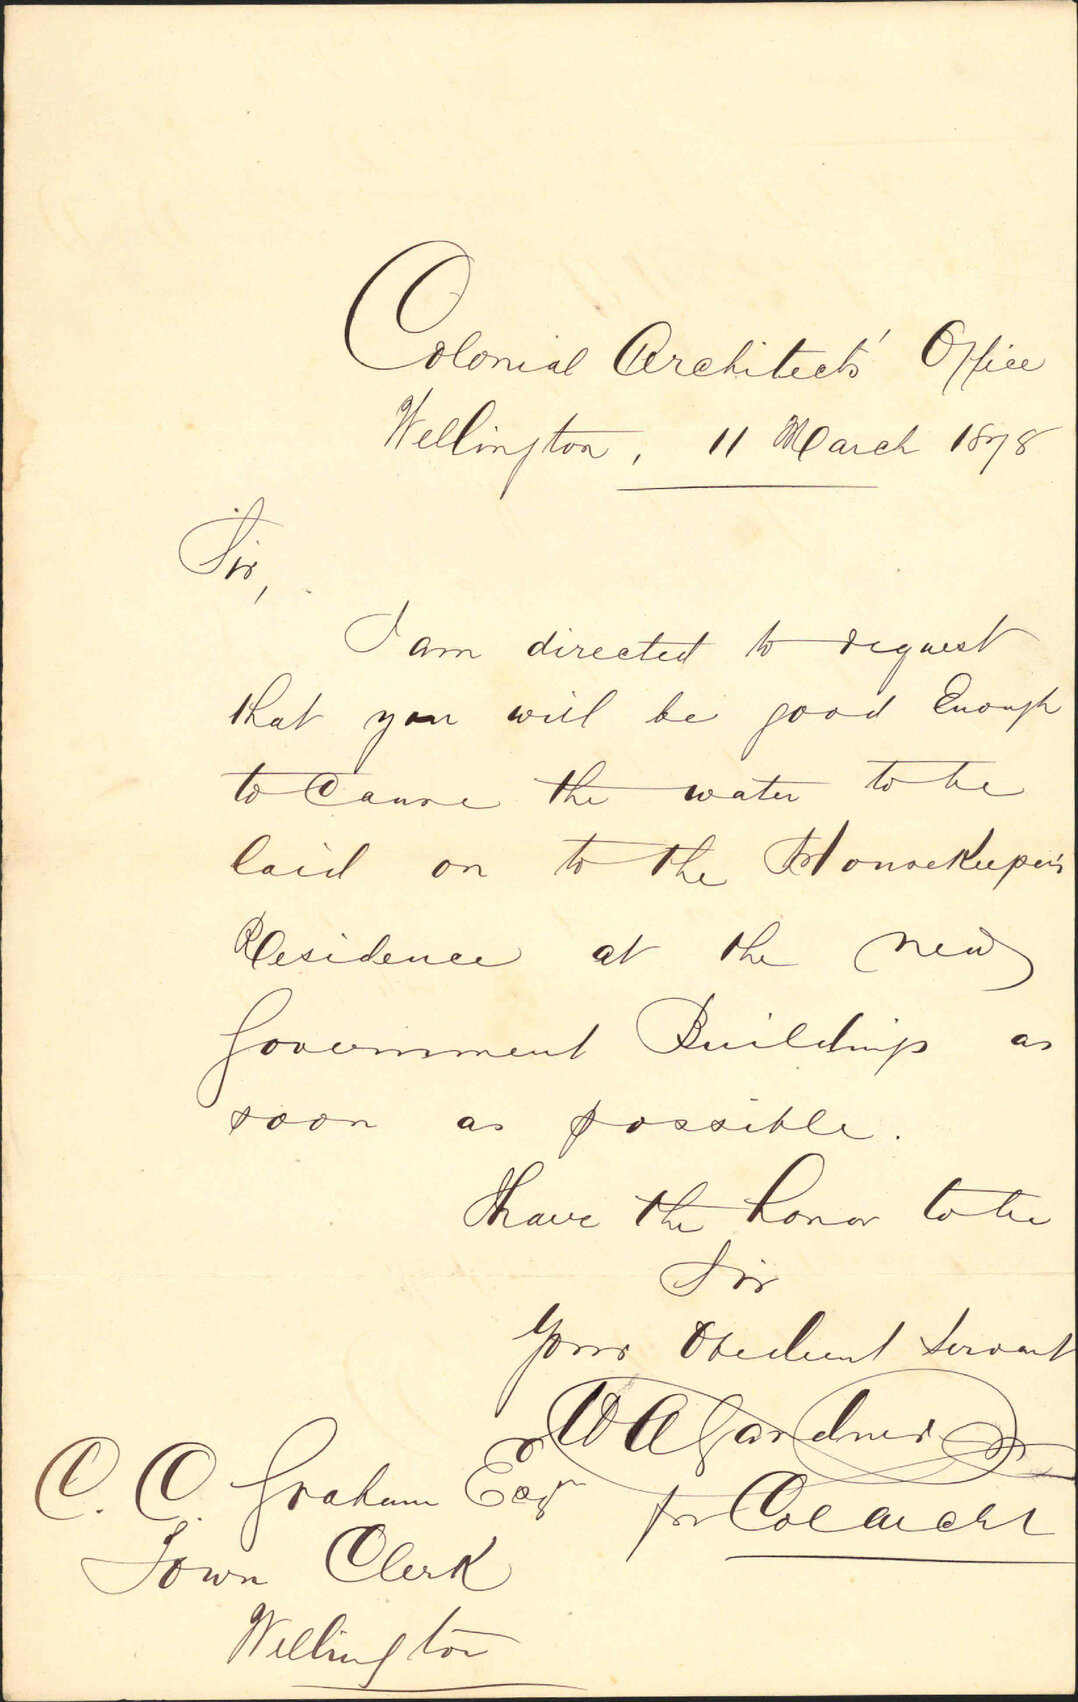 Colonial Architects' Office
Wellington, 11 March 1878
Sir,
I am directed to request
that you will be good Enough
to Cause the water to be
laid on to the Housekeeper's
Residence at the new
Government Buildings as
soon as possible.
I have the honor to be
Sir
Your Obedient Servant
W A Gardner
for Col Archt
C. C. Graham Esqr
Town Clerk
Wellington